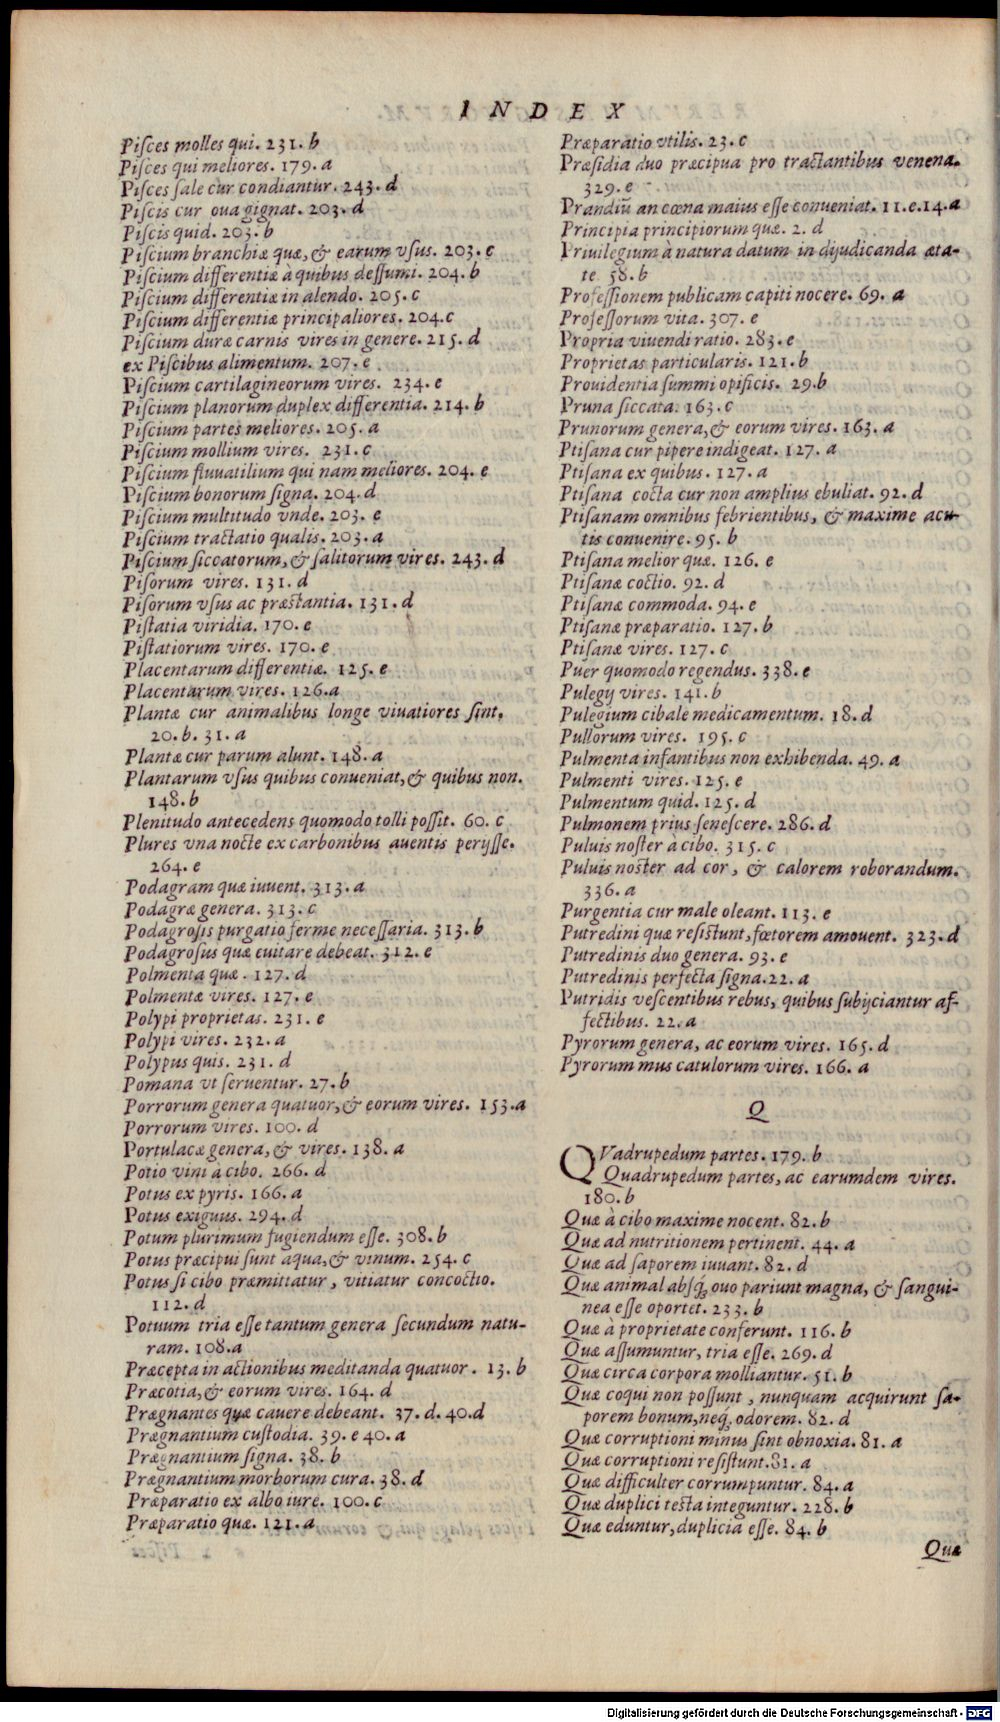 INDEX
Piſces molles qui. 231. b
Piſces qui meliores. 179. a
Piſces ſale cur condiantur. 243. d
Piſcis cur oua gignat. 203. d
Piſcis quid. 203. b
Piſcium branchiæ quæ, & earum vſus. 203. e
Piſcium differentiæ à quibus deſſumi. 204. b
Piſcium differentiæ in alendo. 205. c
Piſcium differentiæ principaliores. 204. c
Piſcium duræ carnis vires in genere. 215. d
ex Piſcibus alimentum. 207. e
Piſcium cartilagineorum vires. 234. e
Piſcium planorum duplex differentia. 214. b
Piſcium partes meliores. 205. a
Piſcium mollium vires. 231. c
Piſcium fluuatilium qui nam meliores. 204. e
Piſcium bonorum ſigna. 204. d
Piſcium multitudo vnde. 203. e
Piſcium tractatio qualis. 203. a
Piſcium ſiccatorum, & ſalitorum vires. 243. d
Piſorum vires. 131. d
Piſorum vſus ac præſtantia. 131. d
Piſtatia viridia. 170. e
Piſtatiorum vires. 170. e
Placentarum differentiæ. 125. e
Placentarum vires. 126. a
Plantæ cur animalibus longe viuatiores ſint.
20. b. 31. a
Plantæ cur parum alunt. 148. a
Plantarum vſus quibus conueniat, & quibus non.
148. b
Plenitudo antecedens quomodo tolli poſſit. 60. c
Plures vna nocte ex carbonibus auentis perijſſe.
264. e
Podagram quæ iuuent. 313. a
Podagræ genera. 313. c
Podagroſis purgatio ferme neceſſaria. 313. b
Podagroſus quæ euitare debeat. 312. e
Polmenta quæ. 127. d
Polmentæ vires. 127. e
Polypi proprietas. 231. e
Polypi vires. 232. a
Polypus quis. 231. d
Pomana vt ſeruentur. 27. b
Porrorum genera quatuor, & eorum vires. 153. a
Porrorum vires. 100. d
Portulacæ genera, & vires. 138. a
Potio vini à cibo. 266. d
Potus ex pyris. 166. a
Potus exiguus. 294. d
Potum plurimum fugiendum eſſe. 308. b
Potus præcipui ſunt aqua, & vinum. 254. c
Potus ſi cibo præmittatur, vitiatur concoctio.
112. d
Potuum tria eſſe tantum genera ſecundum natu-
ram. 108. a
Præcepta in actionibus meditanda quatuor. 13. b
Præcotia, & eorum vires. 164. d
Prægnantes quæ cauere debeant. 37. d. 40. d
Prægnantium cuſtodia. 39. e 40. a
Prægnantium ſigna. 38. b
Prægnantium morborum cura. 38. d
Præparatio ex albo iure. 100. c
Præparatio quæ. 121. a
Præparatio vtilis. 23. c
Præſidia duo præcipua pro tractantibus venena.
329. e
Prandiū an cœna maius eſſe conueniat. 11. e. 14. a
Principia principiorum quæ. 2. d
Priuilegium à natura datum in dijudicanda æta-
te 58. b
Profeſſionem publicam capiti nocere. 69. a
Profeſſorum vita. 307. e
Propria viuendi ratio. 283. e
Proprietas particularis. 121. b
Prouidentia ſummi opificis. 29. b
Pruna ſiccata. 163. c
Prunorum genera, & eorum vires. 163. a
Ptiſana cur pipere indigeat. 127. a
Ptiſana ex quibus. 127. a
Ptiſana cocta cur non amplius ebuliat. 92. d
Ptiſanam omnibus febrientibus, & maxime acu-
tis conuenire. 95. b
Ptiſana melior quæ. 126. e
Ptiſanæ coctio. 92. d
Ptiſanæ commoda. 94. e
Ptiſanæ præparatio. 127. b
Ptiſanæ vires. 127. c
Puer quomodo regendus. 338. e
Pulegij vires. 141. b
Pulegium cibale medicamentum. 18. d
Pullorum vires. 195. c
Pulmenta infantibus non exhibenda. 49. a
Pulmenti vires. 125. e
Pulmentum quid. 125. d
Pulmonem prius ſeneſcere. 286. d
Puluis noſter à cibo. 315. c
Puluis noſter ad cor, & calorem roborandum.
336. a
Purgentia cur male oleant. 113. e
Putredini quæ reſiſtunt, fœtorem amouent. 323. d
Putredinis duo genera. 93. e
Putredinis perfecta ſigna. 22. a
Putridis veſcentibus rebus, quibus ſubijciantur af-
fectibus. 22. a
Pyrorum genera, ac eorum vires. 165. d
Pyrorum mus catulorum vires. 166. a
Q
QVadrupedum partes. 179. b
Quadrupedum partes, ac earumdem vires.
180. b
Quæ à cibo maxime nocent. 82. b
Quæ ad nutritionem pertinent. 44. a
Quæ ad ſaporem iuuant. 82. d
Quæ animal abſq; ouo pariunt magna, & ſangui-
nea eſſe oportet. 233. b
Quæ à proprietate conferunt. 116. b
Quæ aſſumuntur, tria eſſe. 269. d
Quæ circa corpora molliantur. 51. b
Quæ coqui non poſſunt, nunquam acquirunt ſa-
porem bonum, neq; odorem. 82. d
Quæ corruptioni minus ſint obnoxia. 81. a
Quæ corruptioni reſiſtunt. 81. a
Quæ difficulter corrumpuntur. 84. a
Quæ duplici teſta integuntur. 228. b
Quæ eduntur, duplicia eſſe. 84. b
Quæ
Digitalisierung gefördert durch die Deutsche Forschungsgemeinschaft - DFG